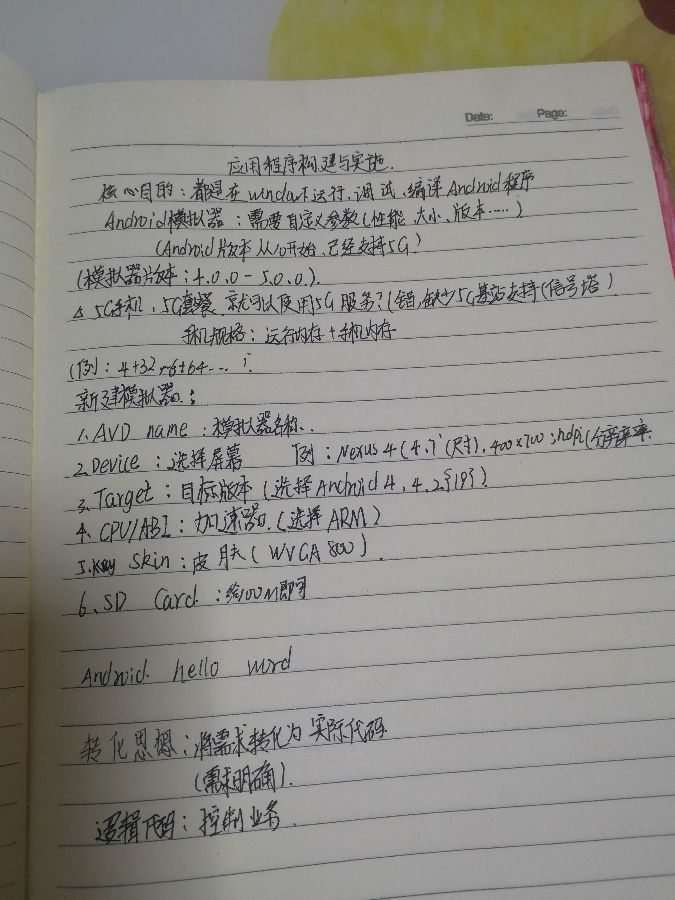 Date: Page:
应用程序构建与实施.
核心目的：都是在window下运行、调试、编译Android程序
Android模拟器：需要自定义参数(性能、大小、版本……)
(Android版本从10开始,已经支持5G)
(模拟器版本：4.0.0-5.0.0.).
△5G手机,5G套餐,就可以使用5G服务?(错,缺少5G基站支持(信号塔)
手机规格：运行内存+手机内存
(例：4+32,6+64...
新建模拟器：
1.AVD name：模拟器名称.
2.Device：选择屏幕 例：Nexus 4(4.7"(尺寸),400×700:hdpi(分辨率
3.Target：目标版本(选择Android 4.4.2{19})
4.CPU/ABI：加速器.(选择ARM)
5.Skin：皮肤(WVGA 800).
6.SD Card：给100M即可
Android. hello word
转化思想：将需求转化为实际代码
(需求明确).
逻辑代码：控制业务.